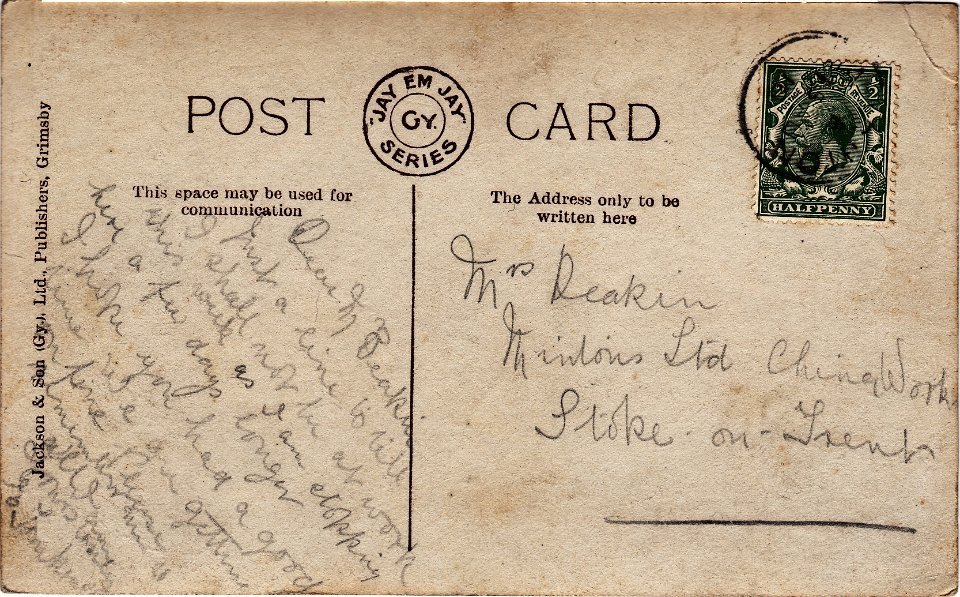 POST CARD
"JAY EM JAY"
GY.
SERIES
This space may be used for
communication
The Address only to be
written here
Jackson & Son (Gy.), Ltd., Publishers, Grimsby
1/2 1/2
POSTAGE REVENUE
HALFPENNY
Dear M Deakin
Just a line to tell
I shall not be at work
this week as I am stopping
here a few days longer
I hope you had a good
time
Mrs Deakin
Mintons Ltd China Works
Stoke-on-Trent